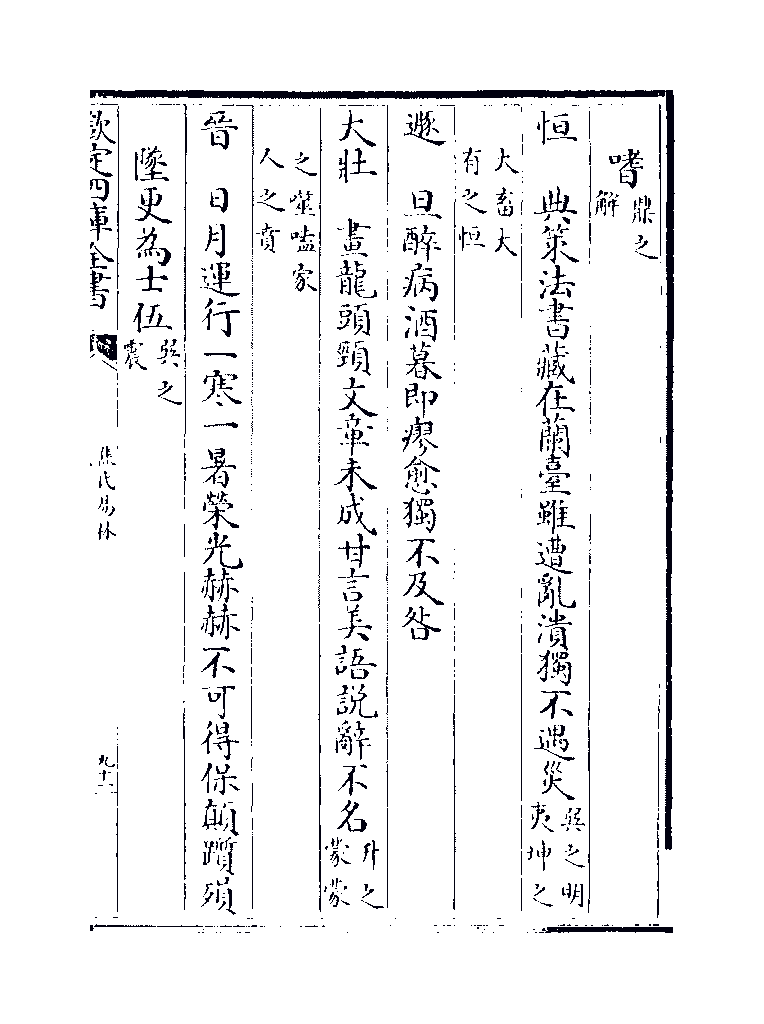 嗜鼎之解
恒　典策法書藏在蘭臺雖遭亂潰獨不遇災巽之明夷坤之
大畜大有之恒
遯　旦醉病酒暮即瘳愈獨不及咎
大壯　畫龍頭頸文章未成甘言美語説辭不名升之蒙蒙
之噬嗑家人之賁
晉　日月運行一寒一暑榮光赫赫不可得保顛躓殞
墜更為士伍巽之震
欽定四庫全書
焦氏易林
九十一